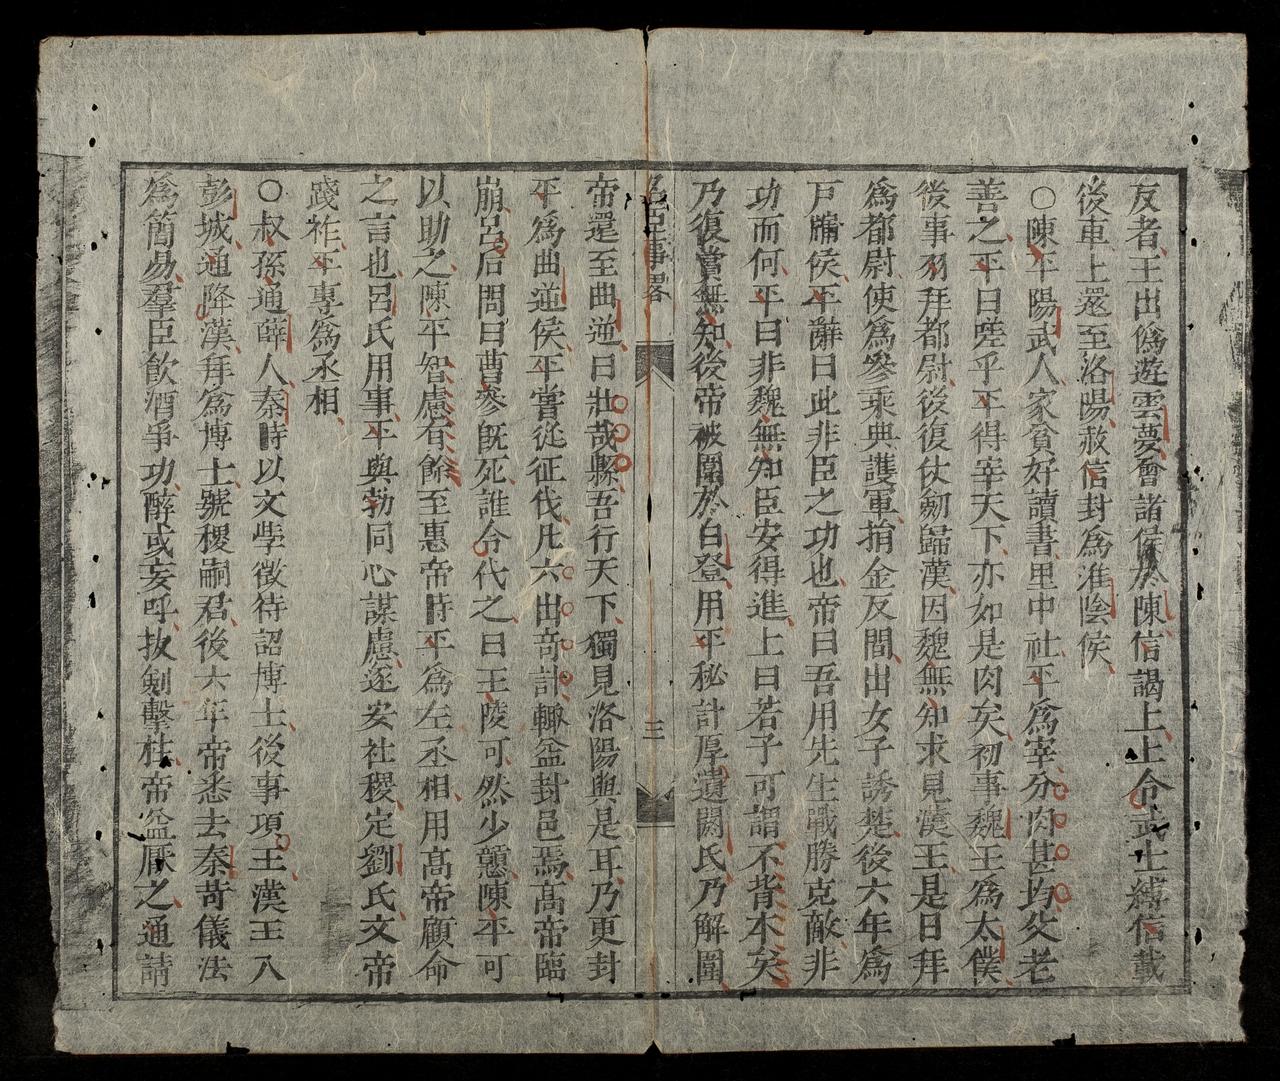 反者王出僞遊雲夢會諸侯於陳信謁上上令武士縛信載
後車上還至洛陽赦信封爲淮陰侯
○陳平陽武人家貧好讀書里中社平爲宰分肉甚均父老
善之平曰嗟乎平得宰天下亦如是肉矣初事魏王爲太僕
後事羽拜都尉後復仗劒歸漢因魏無知求見漢王是日拜
爲都尉使爲參乘典護軍捐金反間出女子誘楚後六年爲
戸牖侯平辭曰此非臣之功也帝曰吾用先生戰勝克敵非
功而何平曰非魏無知臣安得進上曰若子可謂不背本矣
乃復賞無知後帝被圍於白登用平秘計厚遺閼氏乃解圍
名臣事畧
三
帝還至曲逆曰壯哉縣吾行天下獨見洛陽與是耳乃更封
平爲曲逆侯平嘗從征伐凡六出竒計輙益封邑焉高帝臨
崩呂后問曰曹參旣死誰令代之曰王陵可然少戇陳平可
以助之陳平智慮有餘至惠帝時平爲左丞相用高帝顧命
之言也呂氏用事平與勃同心謀慮遂安社稷定劉氏文帝
踐祚平專爲丞相
○叔孫通薛人秦時以文學徵待詔博士後事項王漢王入
彭城通降漢拜爲博士號稷嗣君後六年帝悉去秦苛儀法
爲簡易羣臣飮酒爭功醉或妄呼拔劍擊柱帝益厭之通請